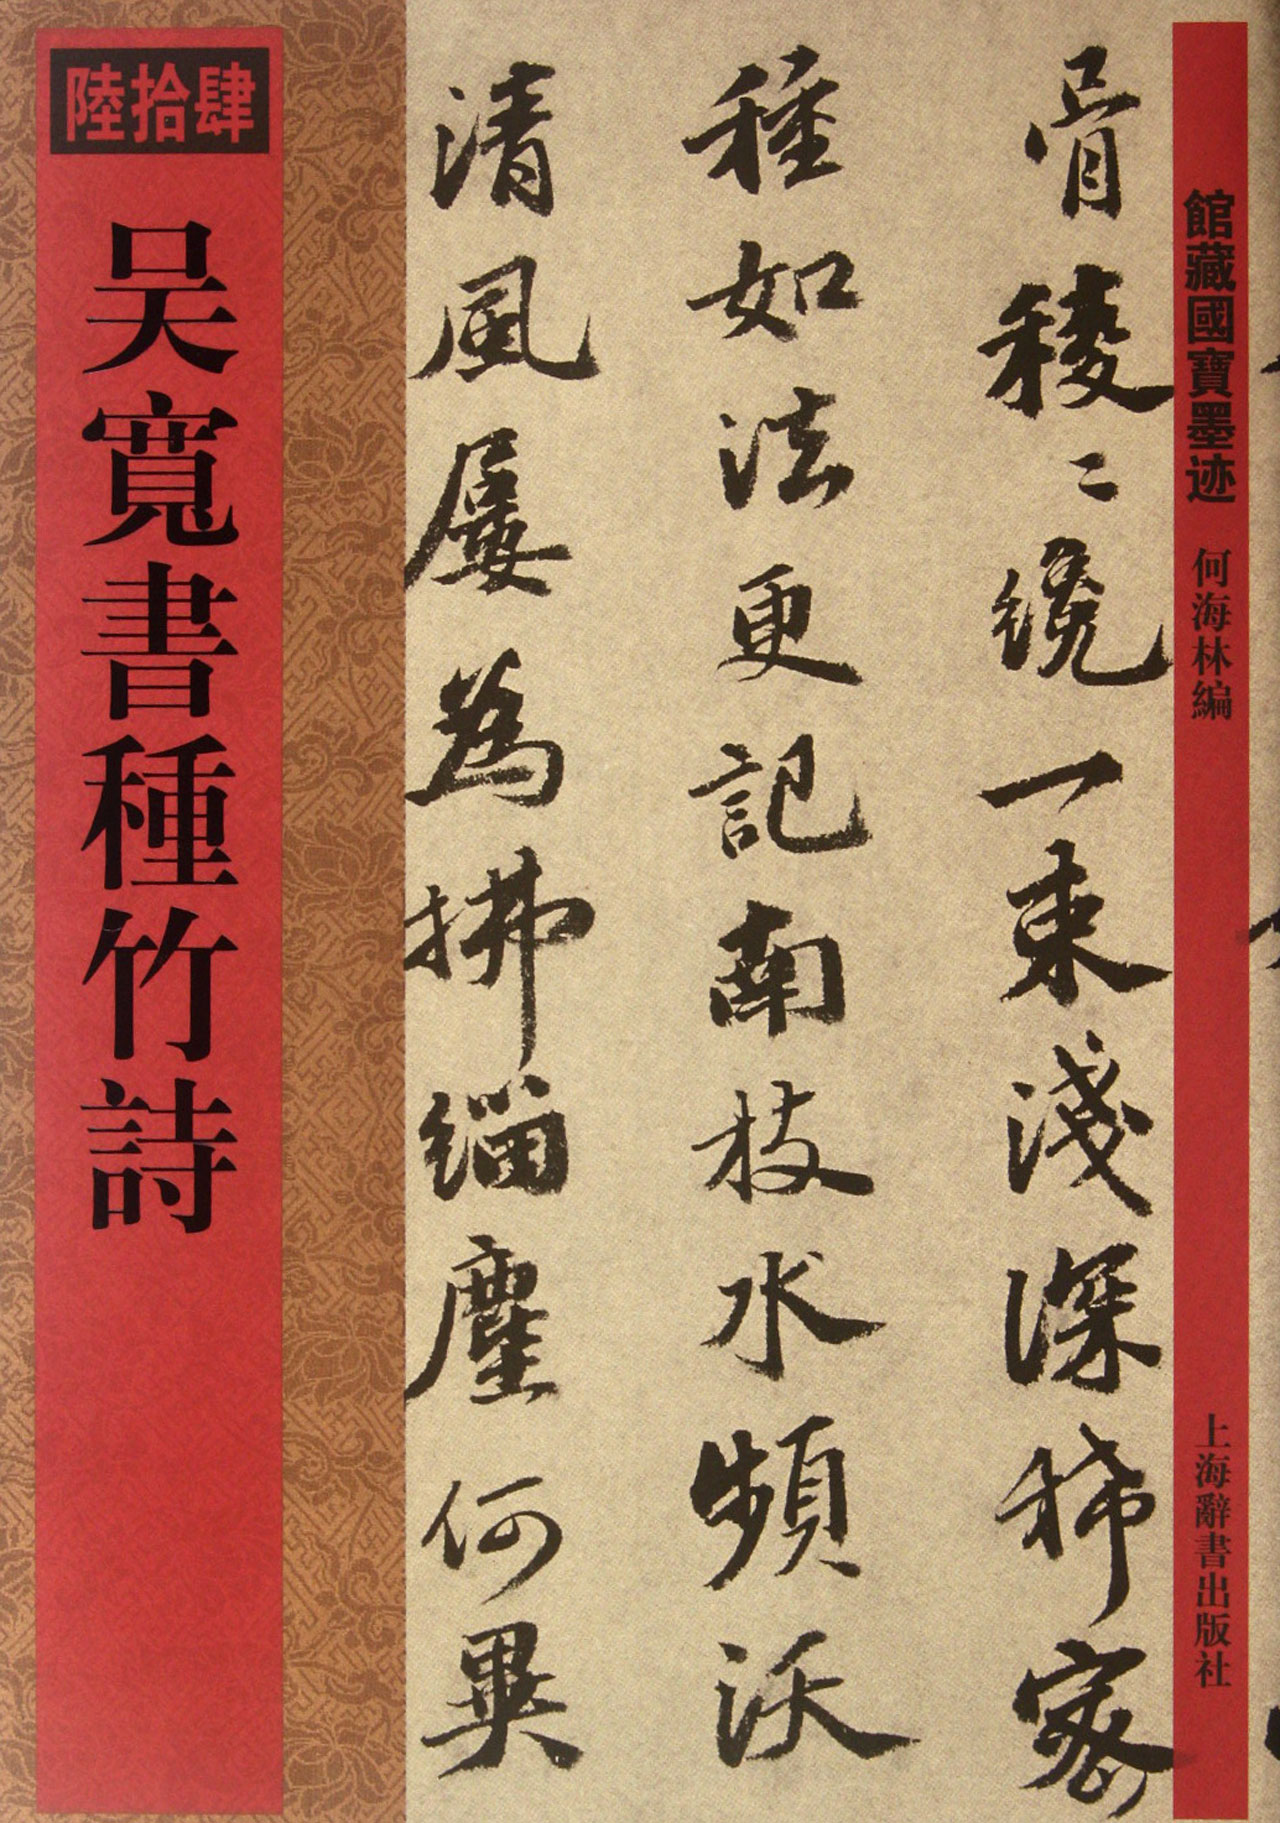 館藏國寶墨迹
何海林編
上海辭書出版社
骨稜〻纔一束淺深稀密
種如法更記南枝水頻沃
清風屢為拂緇塵何異
陸拾肆
吴寬書種竹詩